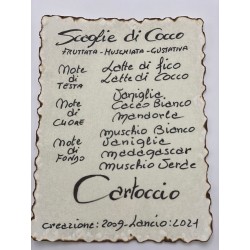 Scoglie di Cocco
FRUTTATA - MUSCHIATA - GUSTATIVA
Note di TESTA
Latte di fico
Latte di Cocco
Note di CUORE
Vaniglia
Cacao Bianco
Mandorle
Note di FONDO
muschio Bianco
Vaniglia
madagascar
muschio Verde
Cartoccio
creazione: 2009 - Lancio: 2021